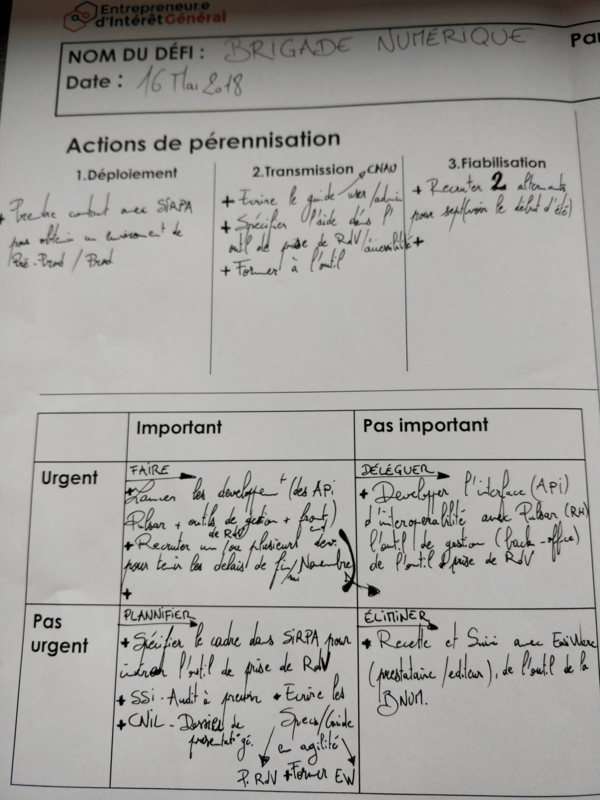 Entrepreneur.e
d'Intérêt Général
NOM DU DÉFI : BRIGADE NUMÉRIQUE
Par
Date : 16 Mai 2018
Actions de pérennisation
1.Déploiement
+ Prendre contact avec SIRPA
pour obtenir un environment de
Pré-Prod / Prod
2.Transmission CNAU
+ Ecrire le guide user/admin
+ Spécifier l'aide dans l'
outil de prise de RdV/accessibilité
+ Former à l'outil
3.Fiabilisation
+ Recruter 2 alternants
pour sept (voir le début d'été)
+
Important
Pas important
Urgent
FAIRE
+ Lancer les developpe^t (des APi
Pulsar + outils de gestion + front)
de RdV
+ Recruter un/ou plusieurs dev.
pour tenir les délais de fin/Novembre
mi
+
DÉLÉGUER
+ Developper l'interface (APi)
d'interopérabilité avec Pulsar (RH)
l'outil de gestion (back-office)
de l'outil prise de RdV
Pas
urgent
PLANNIFIER
+ Spécifier le cadre dans SiRPA pour
l'outil de prise de RdV
+ SSi - Audit à prévoir
+ CNiL - Dossier de
+ Ecrire les
Specs/Guide
en agilité
P. RdV + Former EW
ÉLIMINER
+ Recette et Suivi avec EasiWare
(prestataire/editeur), de l'outil de la
BNUM.